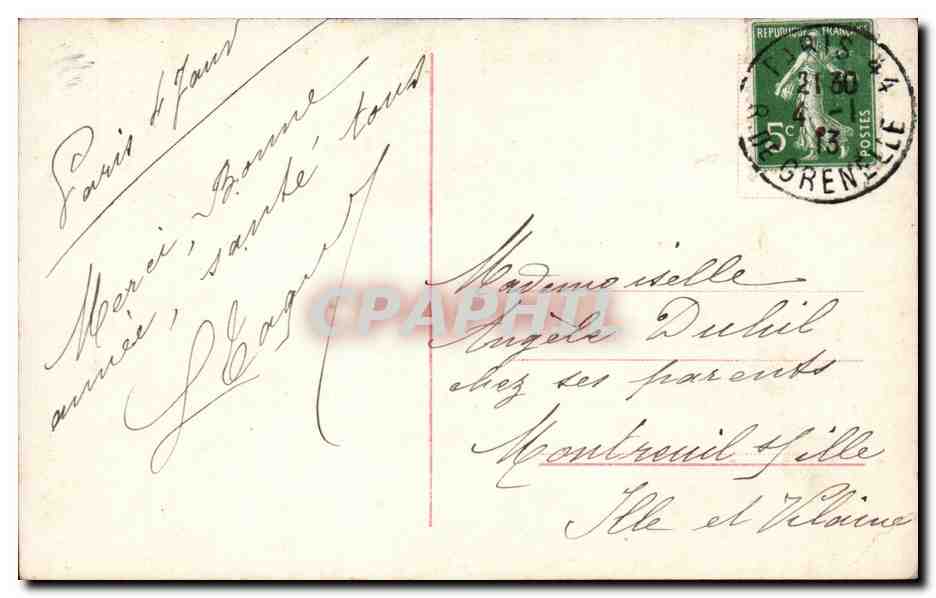 Paris 4 Janv
Merci, Bonne
année, santé à tous
Mademoiselle
Angèle Duhil
chez ses parents
Montreuil s/ Ille
Ille et Vilaine
REPUBLIQUE FRANÇAISE
5c
POSTES
PARIS 44
21 30
4 -1
13
R. DE GRENELLE
CPAPHIL